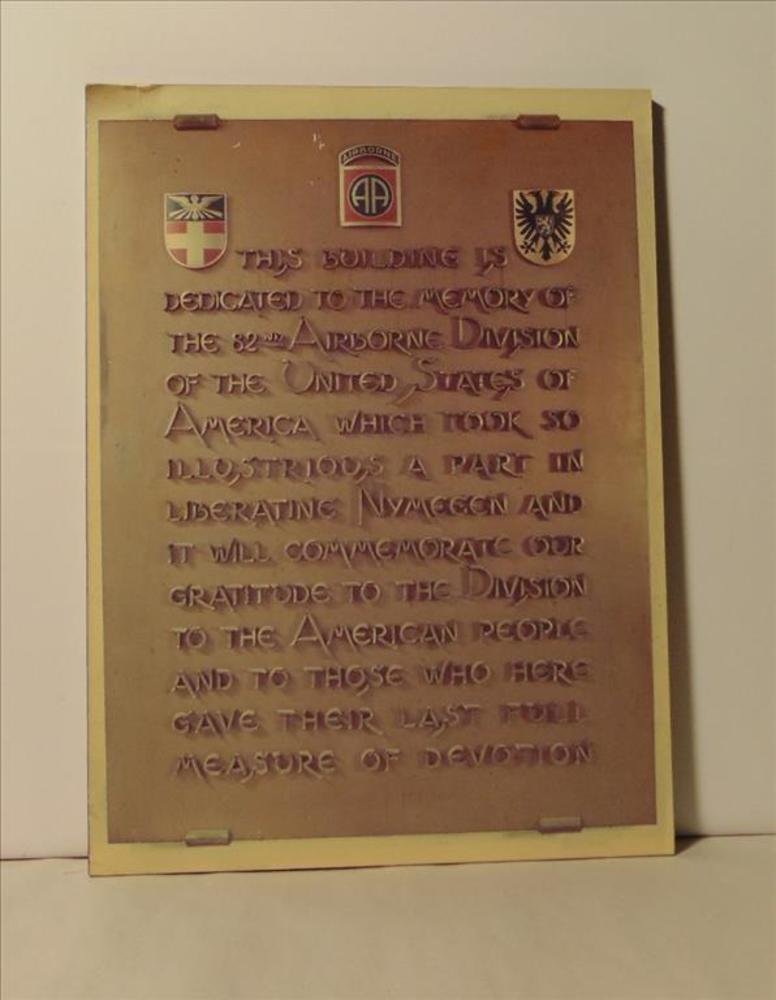 AIRBORNE
AA
THIS BUILDING IS
DEDICATED TO THE MEMORY OF
THE 82ND AIRBORNE DIVISION
OF THE UNITED STATES OF
AMERICA WHICH TOOK SO
ILLUSTRIOUS A PART IN
LIBERATING NYMEGEN AND
IT WILL COMMEMORATE OUR
GRATITUDE TO THE DIVISION
TO THE AMERICAN PEOPLE
AND TO THOSE WHO HERE
GAVE THEIR LAST FULL
MEASURE OF DEVOTION